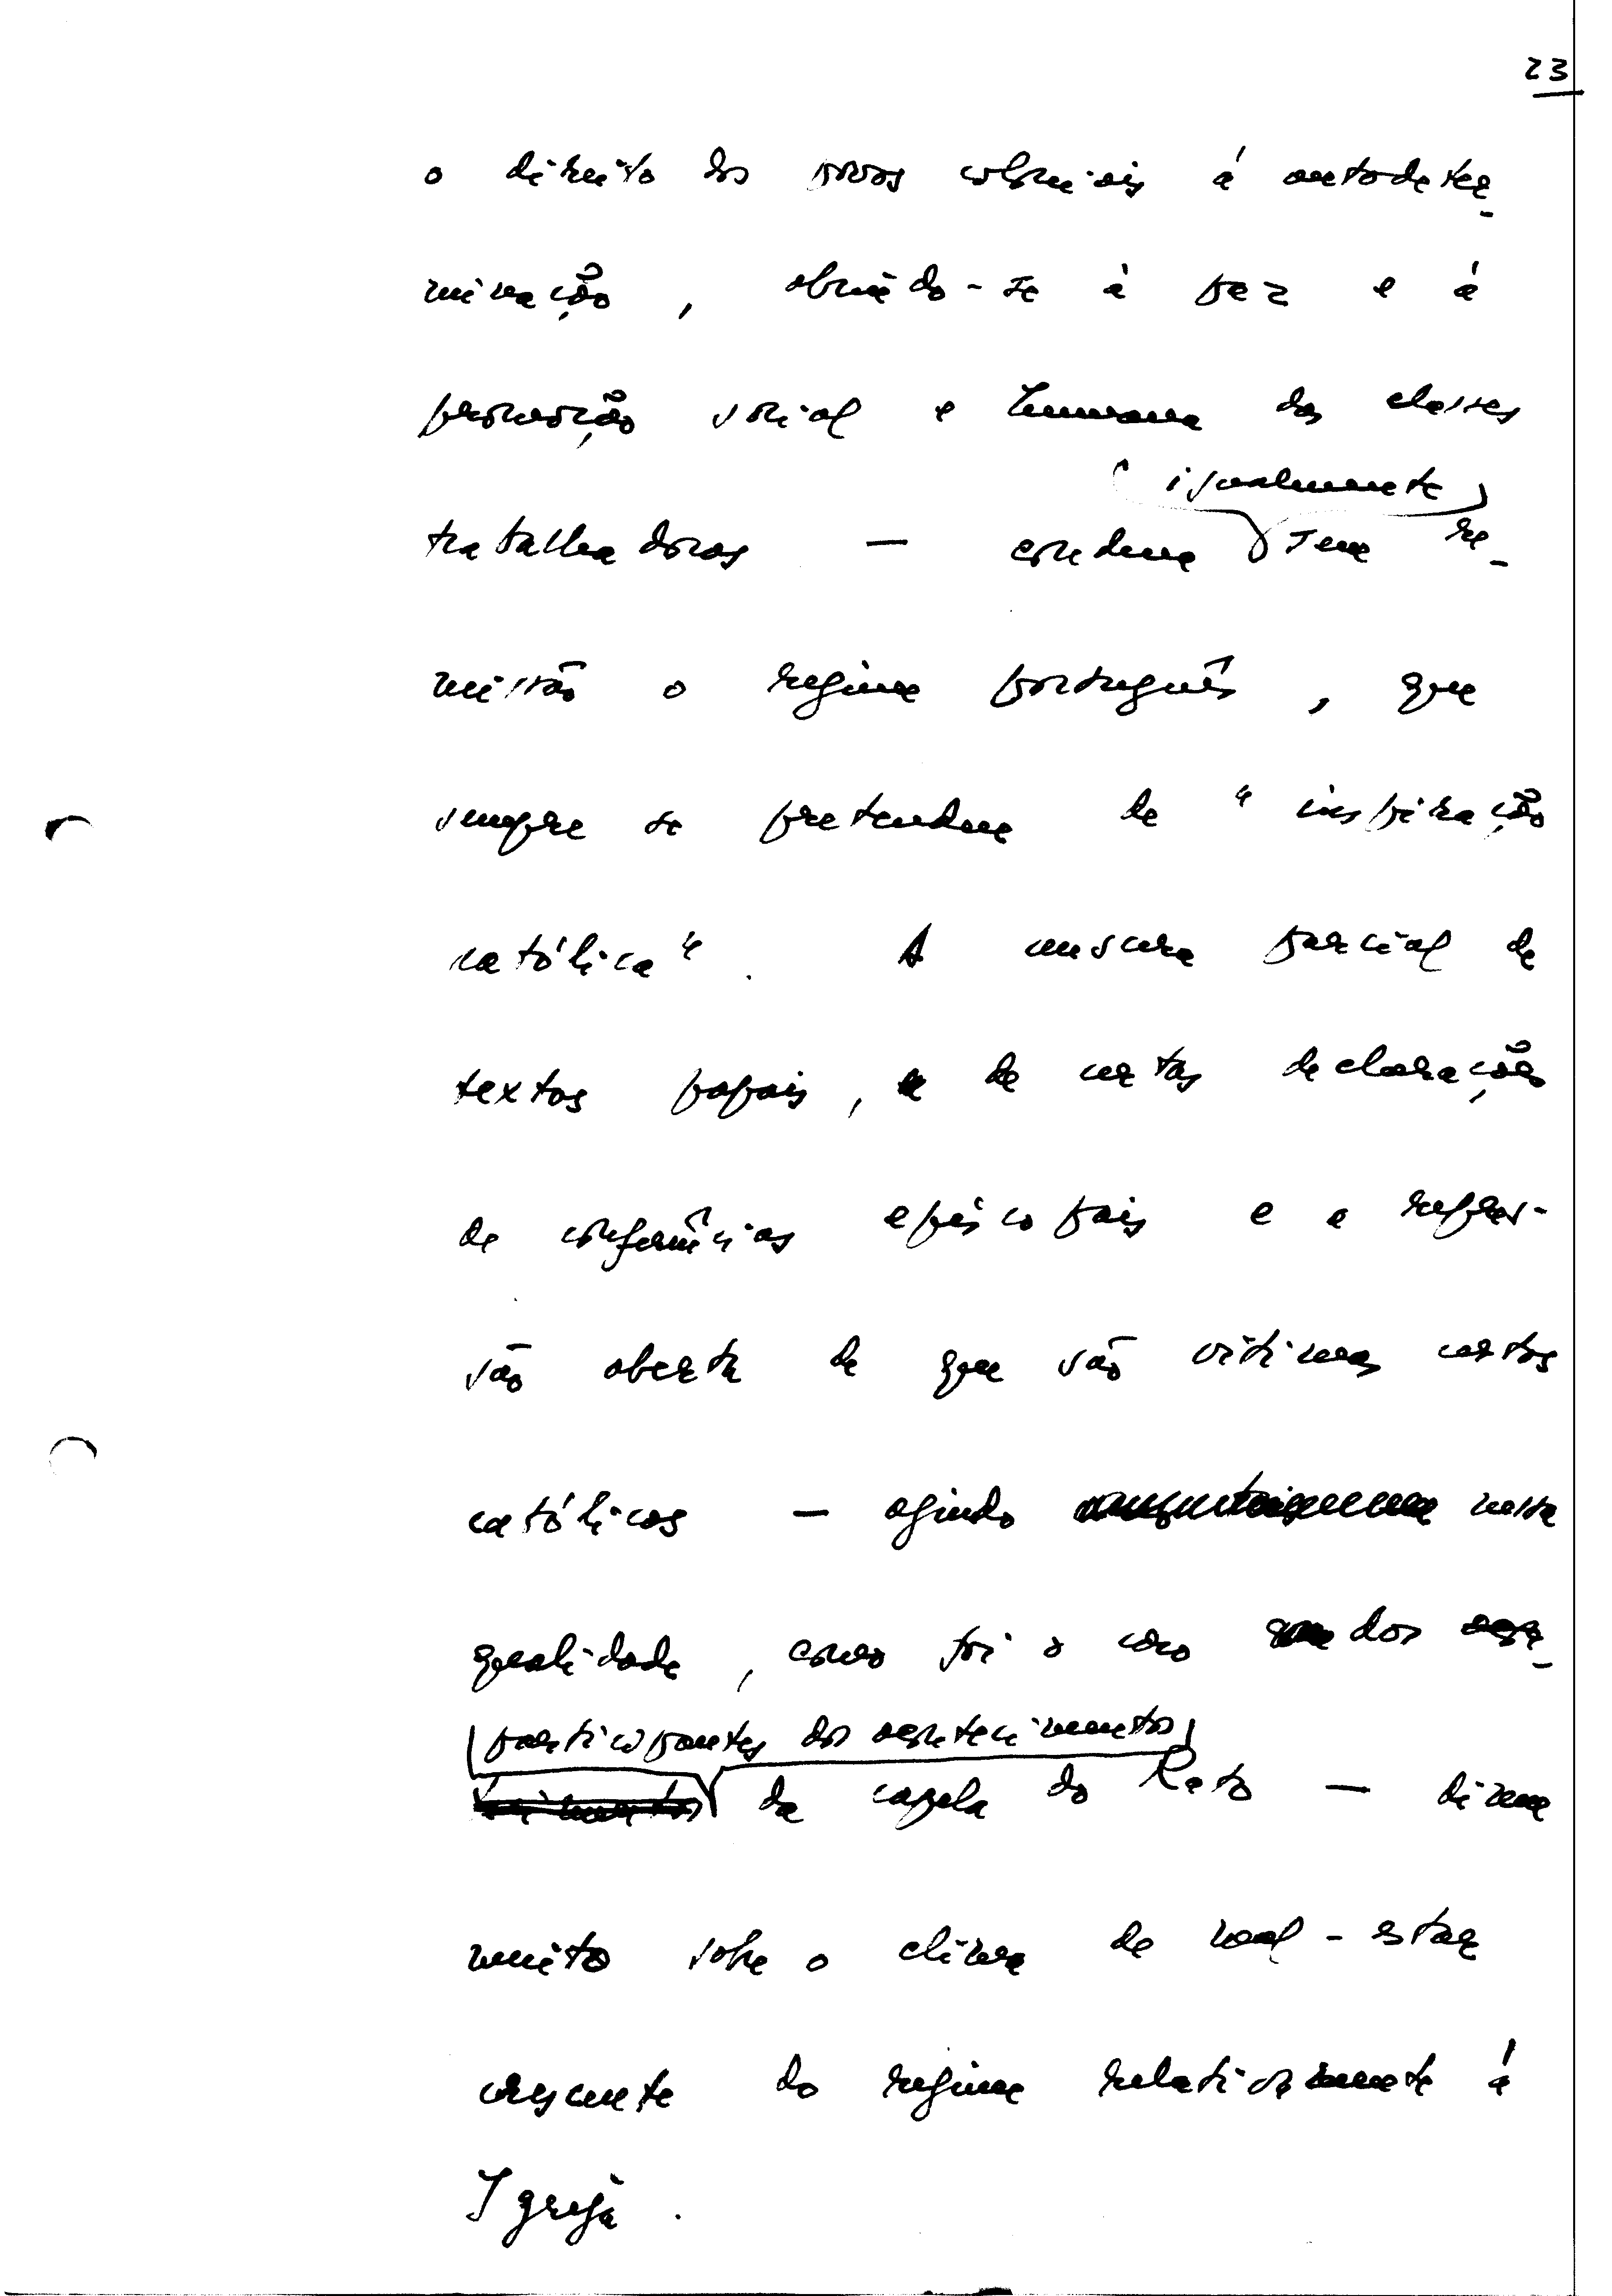 23
o direito dos povos coloniais á autodeter-
minação, abrindo-se à paz e á
promoção social e humana das classes
igualmente
trabalhadoras — condena sem re-
missão o regime português, que
sempre se pretendeu de "inspiração
católica". A censura parcial de
textos papais, de certas declarações
de conferências episcopais e a repres-
são aberta de que são vítimas certos
católicos — agindo nessa
qualidade, como foi o caso dos acon-
participantes dos acontecimentos
tecimentos da capela do Rato — dizem
muito sobre o clima de mal-estar
crescente do regime relativamente á
Igreja.